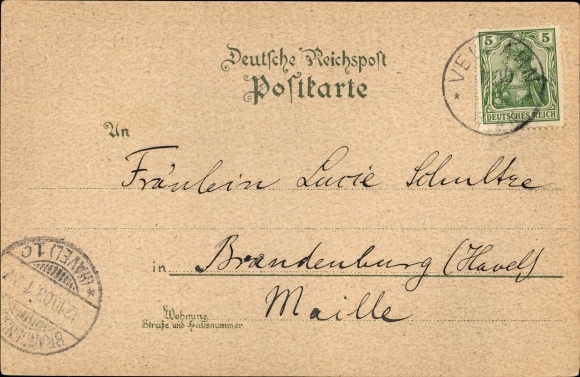 Deutsche Reichspost
Postkarte
5 5
DEUTSCHES REICH
An
Fräulein Lucie Schultze
in Brandenburg (Havel)
Maille
Wohnung
Straße und Hausnummer
* (HAVEL) 1c